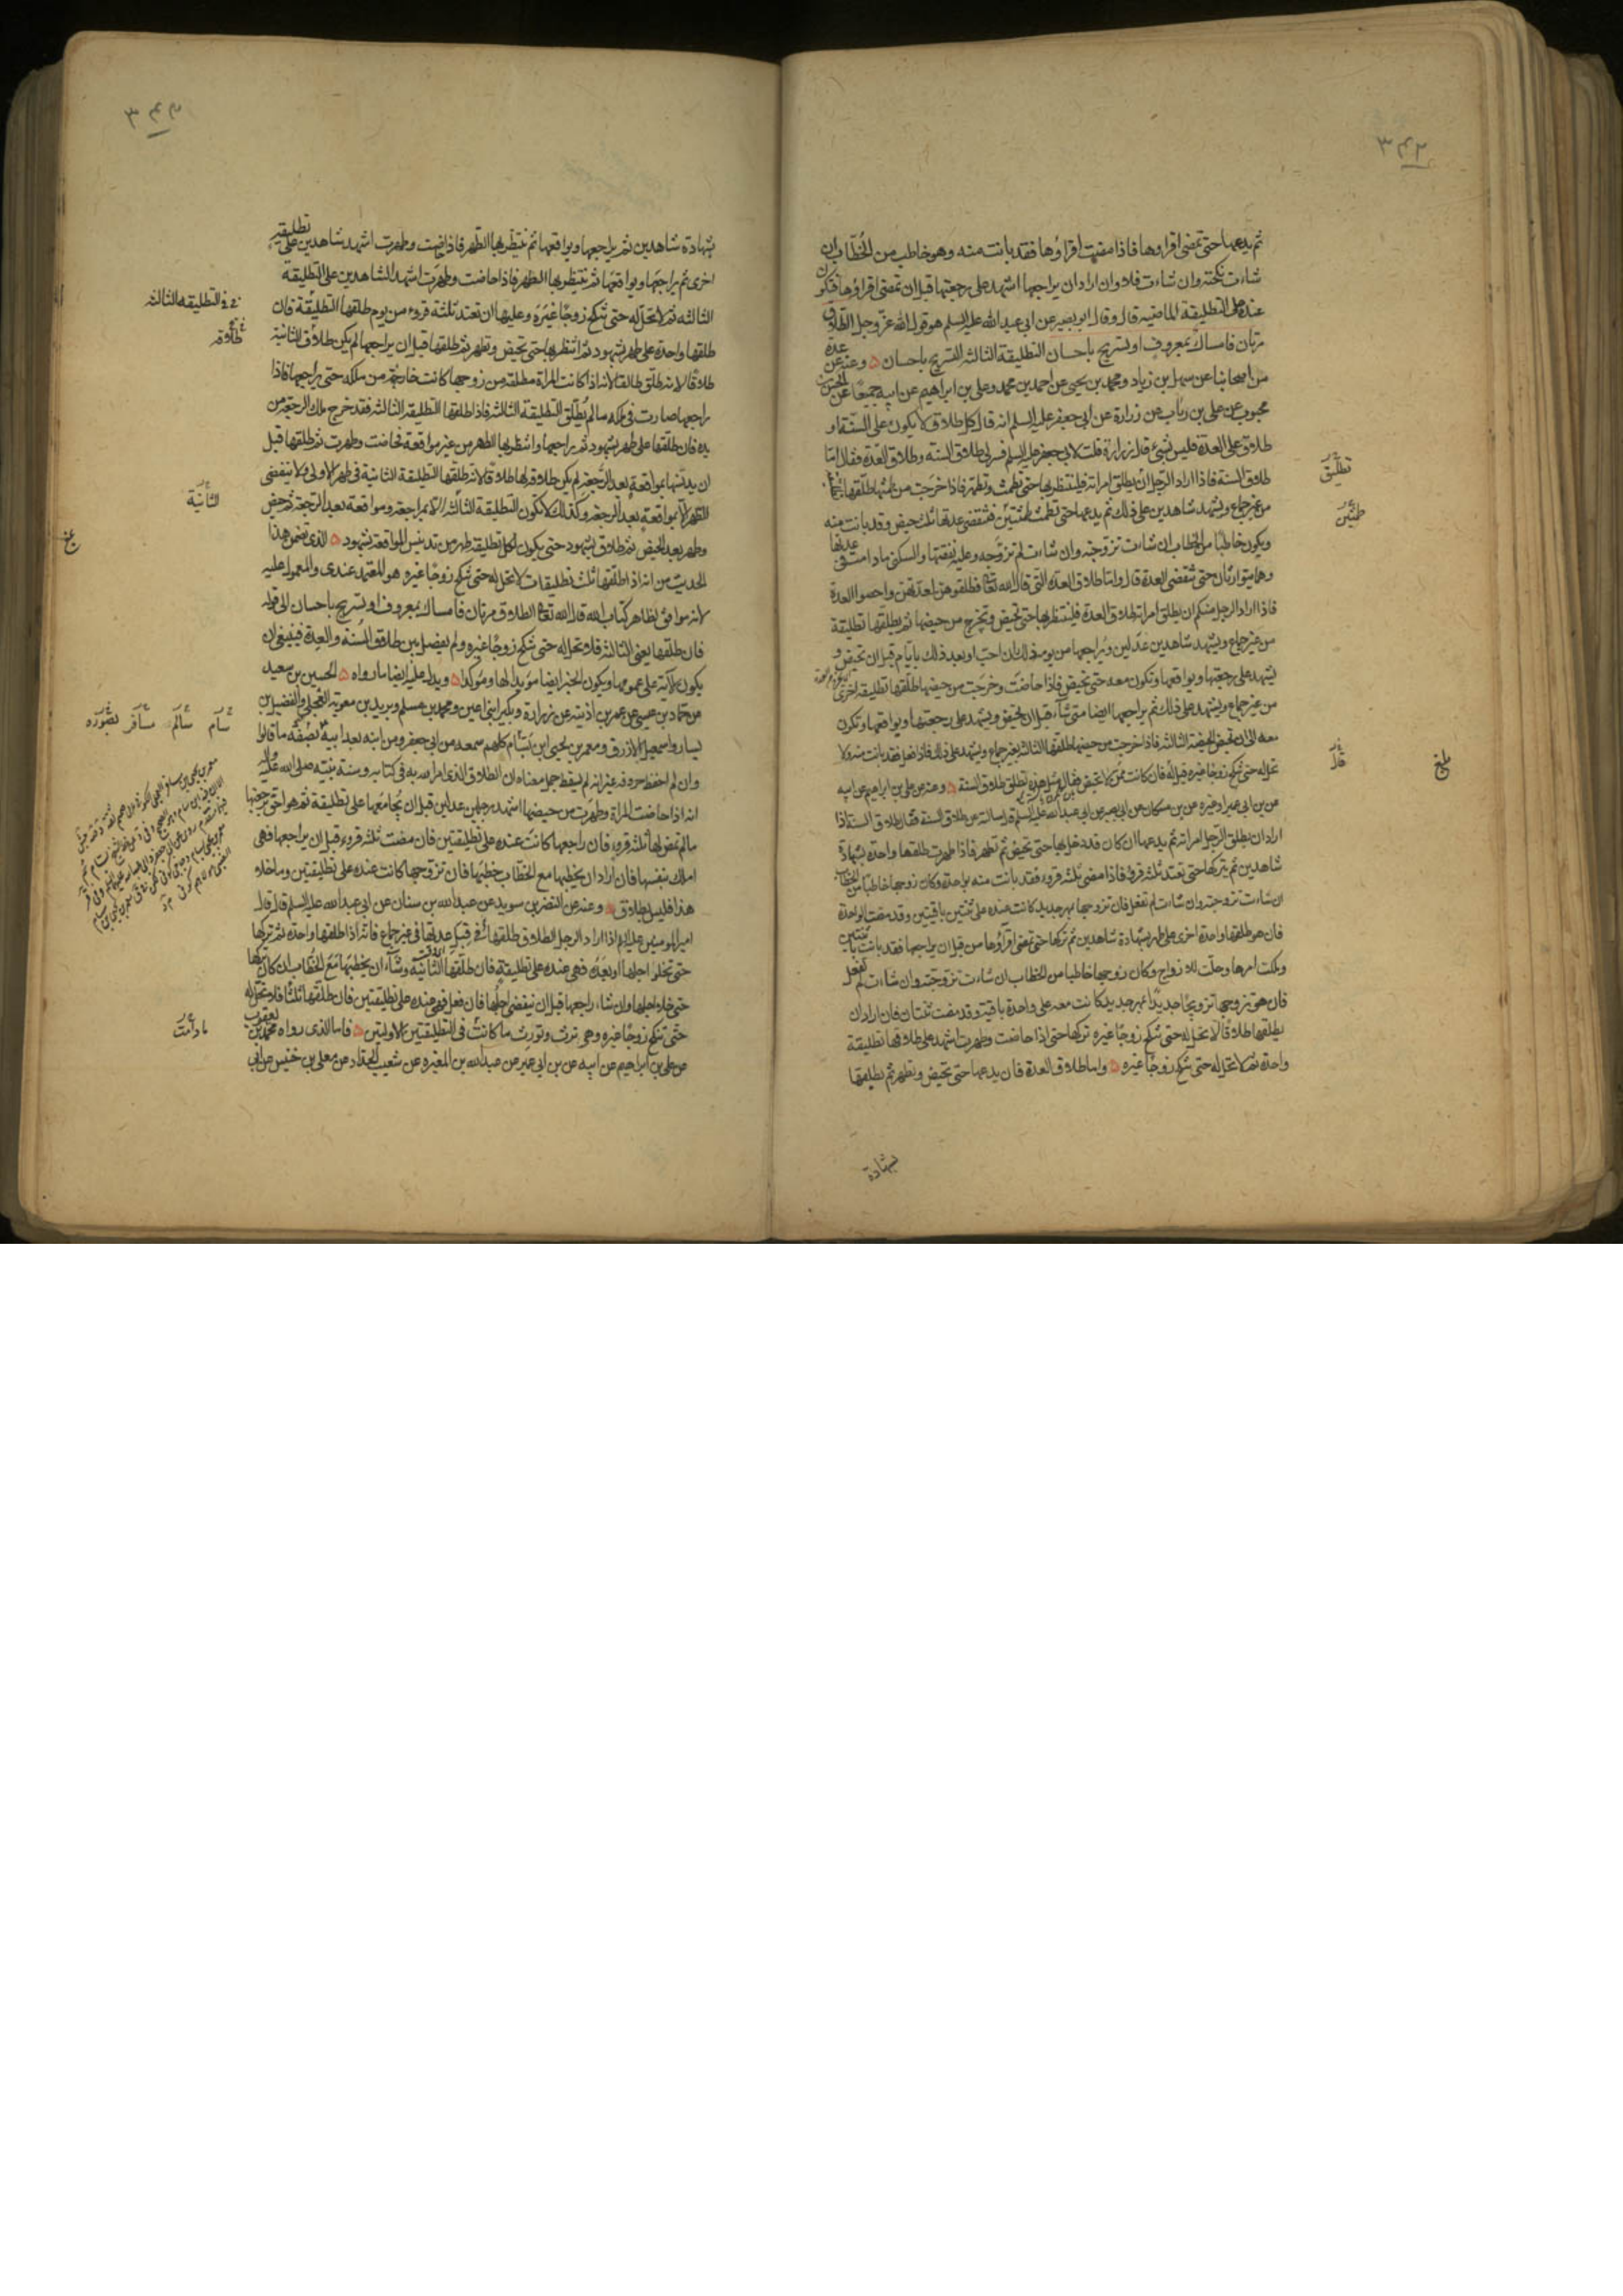 ثم يدعها حتى تمضى اقراوها فاذا مضت اقراؤها فقد بانت منه وهو خاطب من الخُطّاب ان
شاءت نكحته وان شاءت فلا وان اراد ان يراجعها اشهد على رجعتها قبل ان تمضى اقراؤها فتكون
عنده على التطليقة الماضية قال وقال ابو بصير عن ابى عبد الله عليه السلم هو قول الله عزّ وجل الطلاق
مرتان فامساك بمعروف او تسريح باحسان التطليقة الثالثه التسريح باحسان وعنه عن عدة
من اصحابنا عن سهل بن زياد ومحمد بن يحيى عن احمد بن محمد وعلى بن ابراهيم عن ابيه جميعًا عن الحسن بن
محبوب عن على بن رئاب عن زرارة عن ابى جعفر عليه السلم انه قال كل طلاق لا يكون على السنة او
طلاق على العدة فليس بشئ قال زرارة قلت لابى جعفر عليه السلم فسر لى طلاق السنه وطلاق العدة فقال امّا
طلاق السنة فاذا اراد الرجل ان يطلق امراته فلينتظر بها حتى تطمث وتطهر فاذا خرجت من طمثها طلقها تطليقة
من غير جماع ويشهد شاهدين على ذلك ثم يدعها حتى تطمث طمثتين فتنقضى عدتها بثلث حيض وقد بانت منه
ويكون خاطبًا من الخطاب ان شاءت تزوجته وان شاءت لم تزوجه وعليه نفقتها والسكنى مادامت فى عدتها
وهما يتوارثان حتى تنقضى العدة قال واما طلاق العدة التى قال الله تعالى فطلقوهن لعدتهن واحصوا العدة
فاذا اراد الرجل منكم ان يطلق امراته طلاق العدة فلينتظر بها حتى تحيض وتخرج من حيضها ثم يطلقها تطليقة
من غير جماع ويشهد شاهدين عدلين ويراجعها من يومه ذلك ان احب او بعد ذلك بايام قبل ان تحيض و
يشهد على رجعتها ويواقعها وتكون معه حتى تحيض فاذا حاضت وخرجت من حيضها طلقها تطليقة اخرى
من غير جماع ويشهد على ذلك ثم يراجعها ايضا متى شاء قبل ان تحيض ويشهد على رجعتها ويواقعها وتكون
معه الى ان تحيض الحيضة الثالثة فاذا خرجت من حيضها طلقها الثالثة بغير جماع ويشهد على ذلك فاذا فعل فقد بانت منه ولا
تحل له حتى تنكح زوجا غيره قيل له فان كانت ممن لا تحيض فقال مثل هذه تطلق طلاق السنة وعنه عن على بن ابراهيم عن ابيه
عن بن ابى عمير او غيره عن بن مسكان عن ابى بصير عن ابى عبد الله عليه السلم قال سالته عن طلاق السنة فقال طلاق السنة اذا
اراد ان يطلق الرجل امراته ثم يدعها ان كان قد دخل بها حتى تحيض ثم تطهر فاذا طهرت طلقها واحدة بشهادة
شاهدين ثم يتركها حتى تعتد ثلثة قروء فاذا مضى ثلثة قروء فقد بانت منه بواحدة وكان زوجها خاطبًا من الخطاب
ان شاءت تزوجته وان شاءت لم تفعل فان تزوجها بمهر جديد كانت عنده على ثنتين باقيتين وقد مضت الواحدة
فان هو طلقها واحدة اخرى على طهر بشهادة شاهدين ثم تركها حتى تمضى اقراؤها من قبل ان يراجعها فقد بانت باثنتين
وملكت امرها وحلّت للازواج وكان زوجها خاطبا من الخطاب ان شاءت تزوجته وان شاءت لم تفعل
فان هو تزوجها تزويجًا جديدًا بمهر جديد كانت معه على واحدة باقية وقد مضت ثنتان فان اراد ان
يطلقها طلاقًا لا تحل له حتى تنكح زوجًا غيره تركها حتى اذا حاضت وطهرت اشهد على طلاقها تطليقة
واحدة ثم لا تحل له حتى تنكح زوجًا غيره واما طلاق العدة فان يدعها حتى تحيض وتطهر ثم يطلقها
بشهادة
بلغ
٣٤٢
بشهادة شاهدين ثم يراجعها ويواقعها ثم ينتظر بها الطهر فاذا حاضت وطهرت اشهد شاهدين على تطليقه
اخرى ثم يراجعها ويواقعها ثم ينتظر بها الطهر فاذا حاضت وطهرت اشهد الشاهدين على التطليقة
الثالثه ثم لا تحل له حتى تنكح زوجًا غيره وعليها ان تعتد ثلثه قروء من يوم طلقها التطليقة فان
طلقها واحدة على طهر بشهود ثم انتظر بها حتى تحيض وتطهر ثم طلقها قبل ان يراجعها لم يكن طلاق الثانية
طلاقًا لانه طلّق طالقا لانه اذا كانت المراة مطلقة من زوجها كانت خارجة من ملكه حتى يراجعها فاذا
راجعها صارت فى ملكه ما لم يطلق التطليقة الثالثة فاذا طلقها التطليقة الثالثه فقد خرج ملك الرجعة من
يده فان طلقها على طهر بشهود ثم راجعها وانتظر بها الطهر من غير مواقعة فحاضت وطهرت ثم طلقها قبل
ان يدنسها بمواقعة بعد الرجعة لم يكن طلاقه لها طلاقا لانه طلقها التطليقة الثانية فى طهر الاولى ولا ينقضى
الطهر الا بمواقعة بعد الرجعة وكذلك لا تكون التطليقة الثالثه الا بمراجعة ومواقعة بعد الرجعة ثم حيض
وطهر بعد الحيض ثم طلاق بشهود حتى يكون لكل تطليقة طهر من تدنيس المواقعة بشهود الذى تضمن هذا
الحديث من انه اذا طلّقها ثلث تطليقات لا تحل له حتى تنكح زوجًا غيره هو المعتمد عندى والمعمول عليه
لانه موافق لظاهر كتاب الله قال الله تعالى الطلاق مرتان فامساك بمعروف او تسريح باحسان الى قوله
فان طلقها يعنى الثالثة فلا تحل له حتى تنكح زوجًا غيره ولم يفصل بين طلاق السنة والعدة فينبغى ان
يكون الآية على عمومها ويكون الخبر ايضا مؤيدا لها ومؤكدا ويدل عليه ايضا ما رواه الحسين بن سعيد
عن حماد بن عيسى عن عمر بن اذينة عن زرارة وبكير ابنى اعين ومحمد بن مسلم وبريد بن معوية العجلى والفضيل بن
يسار واسمعيل الازرق ومعمر بن يحيى ابن بسّام كلهم سمعه من ابى جعفر ومن ابنه بعد ابيه بصفة ما قالوا
وان لم احفظ حروفه غير انه لم يسقط جمل معناه ان الطلاق الذى امر الله به فى كتابه وسنة نبيّه صلى الله عليه واله
انه اذا حاضت المراة وطهرت من حيضها اشهد رجلين عدلين قبل ان يجامعها على تطليقة ثم هو احق برجعتها
ما لم تمض لها ثلثة قروء فان راجعها كانت عنده على تطليقتين فان مضت ثلثه قروء قبل ان يراجعها فهى
املك بنفسها فان اراد ان يخطبها مع الخطاب خطبها فان تزوجها كانت عنده على تطليقتين وما خلا
هذا فليس بطلاق وعنه عن النضر بن سويد عن عبد الله بن سنان عن ابى عبد الله عليه السلم قال قال
امير المومنين عليه السلم اذا اراد الرجل الطلاق طلقها فى قبل عدتها فى غير جماع فانه اذا طلقها واحدة ثم تركها
حتى تخلو اجلها او بعده فهى عنده على تطليقة فان طلّقها الثانية وشاء ان يخطبها مع الخُطّاب ان كان تركها
حتى خلا اجلها وان شاء راجعها قبل ان ينقضى اجلها فان فعل فهى عنده على تطليقتين فان طلّقها ثلثا فلا تحل له
حتى تنكح زوجًا غيره وهى ترث وتورث ما كانت فى التطليقتين الاوليتين فاما الذى رواه محمد بن يعقوب
عن على بن ابراهيم عن ابيه عن بن ابى عمير عن عبد الله بن المغيره عن شعيب الحداد عن معلى بن خنيس عن ابى
فى التطليقه الثالثه
طلاقه
الثانية
سام سالم مسافر بصوره
مادامت